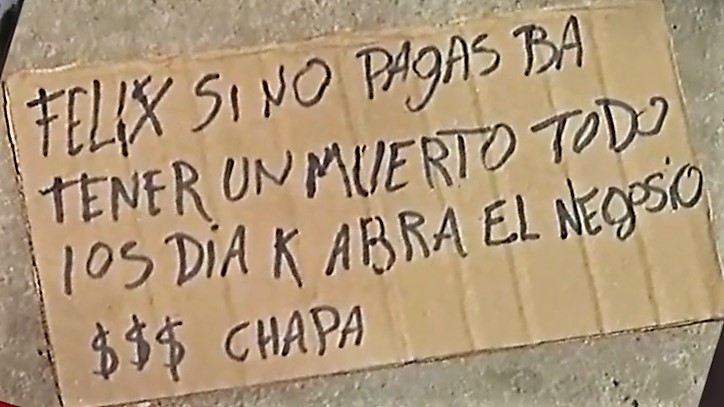 FELIX SI NO PAGAS BA
TENER UN MUERTO TODO
LOS DIA K ABRA EL NEGOSIO
$$$ CHAPA